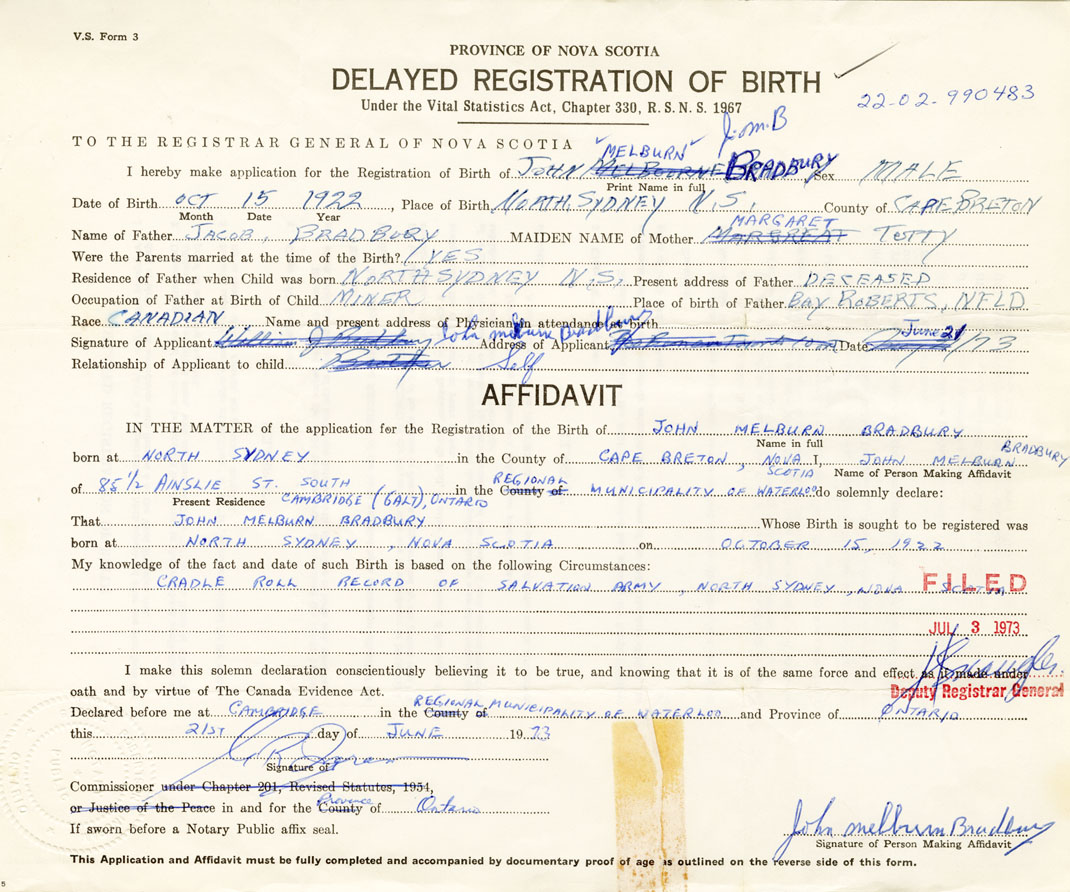 V.S. Form 3
PROVINCE OF NOVA SCOTIA
DELAYED REGISTRATION OF BIRTH
Under the Vital Statistics Act, Chapter 330, R.S.N.S. 1967
22-02-990483
J.M.B
TO THE REGISTRAR GENERAL OF NOVA SCOTIA
"MELBURN"
I hereby make application for the Registration of Birth of JOHN MELBOURNE BRADBURY Sex MALE
Print Name in full
Date of Birth OCT 15 1922, Place of Birth NORTH SYDNEY N.S. County of CAPE BRETON
Month Date Year
MARGARET
Name of Father JACOB BRADBURY MAIDEN NAME of Mother MARGREAT TETTY
Were the Parents married at the time of the Birth? YES
Residence of Father when Child was born NORTH SYDNEY N.S. Present address of Father DECEASED
Occupation of Father at Birth of Child MINER Place of birth of Father BAY ROBERTS, NFLD
Race CANADIAN Name and present address of Physician in attendance at birth
John Melburn Bradbury June 21
Signature of Applicant William J Bradbury Address of Applicant Date /73
Relationship of Applicant to child Brother Self
AFFIDAVIT
IN THE MATTER of the application for the Registration of the Birth of JOHN MELBURN BRADBURY
Name in full BRADBURY
born at NORTH SYDNEY in the County of CAPE BRETON, NOVA I, JOHN MELBURN
SCOTIA Name of Person Making Affidavit
REGIONAL
of 85 1/2 AINSLIE ST. SOUTH in the County of MUNICIPALITY OF WATERLOO do solemnly declare:
Present Residence CAMBRIDGE (GALT), ONTARIO
That JOHN MELBURN BRADBURY Whose Birth is sought to be registered was
born at NORTH SYDNEY, NOVA SCOTIA on OCTOBER 15, 1922
My knowledge of the fact and date of such Birth is based on the following Circumstances:
CRADLE ROLL RECORD OF SALVATION ARMY, NORTH SYDNEY, NOVA SCOTIA
FILED
JUL 3 1973
I make this solemn declaration conscientiously believing it to be true, and knowing that it is of the same force and effect as if made under
Deputy Registrar General
oath and by virtue of The Canada Evidence Act.
REGIONAL
Declared before me at CAMBRIDGE in the County of MUNICIPALITY OF WATERLOO and Province of ONTARIO
this 21ST day of JUNE 1973
Signature of
Commissioner under Chapter 201, Revised Statutes, 1954,
Province
or Justice of the Peace in and for the County of Ontario
If sworn before a Notary Public affix seal.
John Melburn Bradbury
Signature of Person Making Affidavit
This Application and Affidavit must be fully completed and accompanied by documentary proof of age as outlined on the reverse side of this form.
5